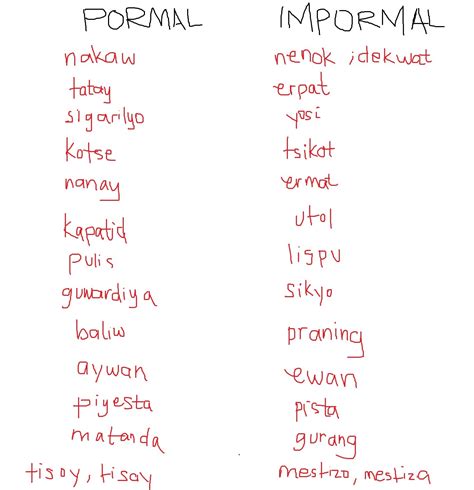 PORMAL IMPORMAL
nakaw nenok ; dekwat
tatay erpat
sigarilyo yosi
kotse tsikot
nanay ermat
kapatid utol
pulis lispu
guwardiya sikyo
baliw praning
aywan ewan
piyesta pista
matanda gurang
tisoy, tisay mestizo, mestiza